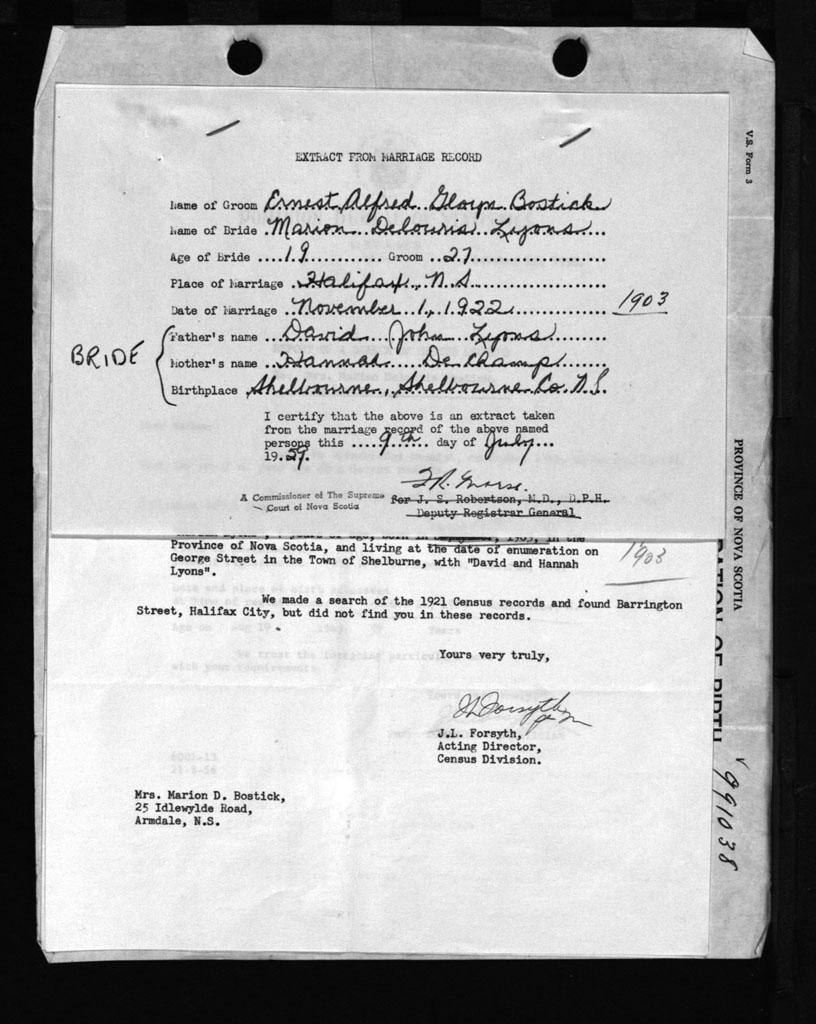 V.S. Form 3
EXTRACT FROM MARRIAGE RECORD
Name of Groom Ernest Alfred Bostick
Name of Bride Marion Delouris Lyons
Age of Bride 19 Groom 27
Place of Marriage Halifax, N.S
Date of Marriage November 1, 1922 1903
BRIDE
Father's name David John Lyons
Mother's name Hannah DeChamp
Birthplace Shelbourne, Shelbourne Co. N.S.
I certify that the above is an extract taken
from the marriage record of the above named
persons this 9th day of July
19
A Commissioner of The Supreme
Court of Nova Scotia
for J. S. Robertson, M.D., D.P.H.
Deputy Registrar General
Province of Nova Scotia, and living at the date of enumeration on
George Street in the Town of Shelburne, with "David and Hannah
Lyons".
1903
We made a search of the 1921 Census records and found Barrington
Street, Halifax City, but did not find you in these records.
Yours very truly,
J.L. Forsyth,
Acting Director,
Census Division.
Mrs. Marion D. Bostick,
25 Idlewylde Road,
Armdale, N.S.
PROVINCE OF NOVA SCOTIA
RATION OF BIRTH
991038